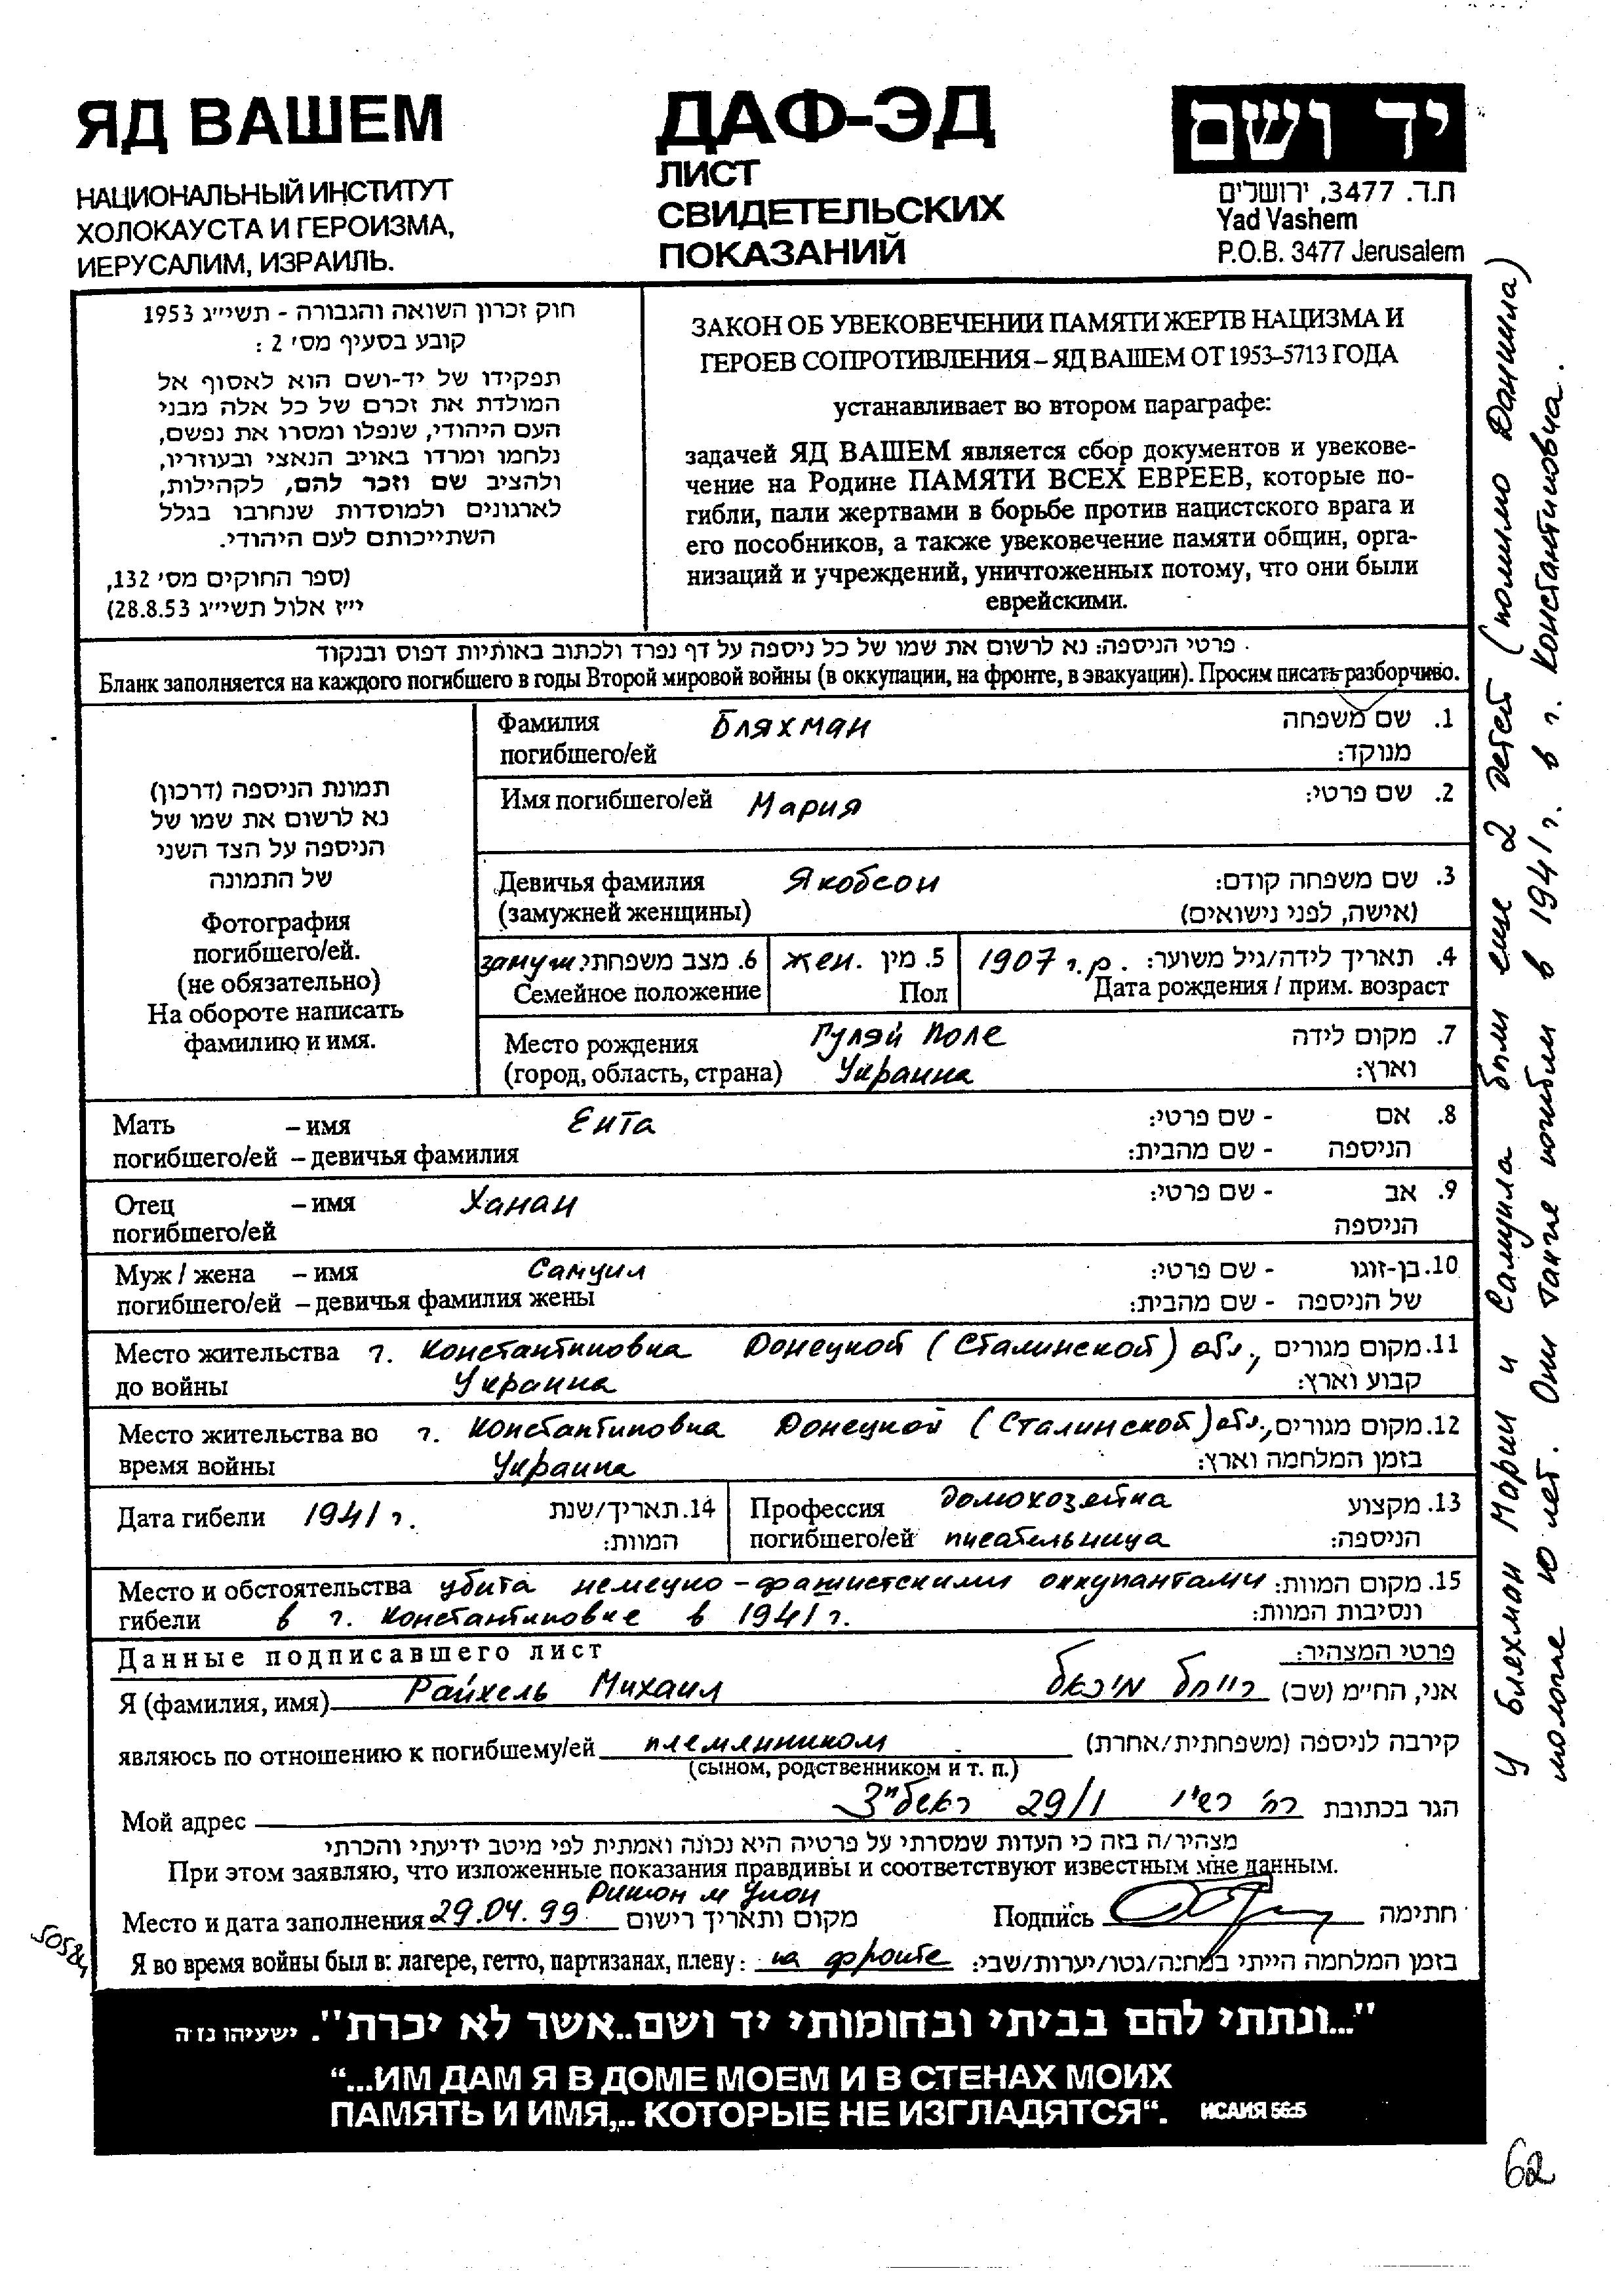 ЯД ВАШЕМ
НАЦИОНАЛЬНЫЙ ИНСТИТУТ
ХОЛОКАУСТА И ГЕРОИЗМА,
ИЕРУСАЛИМ, ИЗРАИЛЬ.
ДАФ-ЭД
ЛИСТ
СВИДЕТЕЛЬСКИХ
ПОКАЗАНИЙ
יד ושם
ת.ד. 3477, ירושלים
Yad Vashem
P.O.B. 3477 Jerusalem
חוק זכרון השואה והגבורה - תשי״ג 1953
קובע בסעיף מס׳ 2 :
תפקידו של יד-ושם הוא לאסוף אל
המולדת את זכרם של כל אלה מבני
העם היהודי, שנפלו ומסרו את נפשם,
נלחמו ומרדו באויב הנאצי ובעוזריו,
ולהציב שם וזכר להם, לקהילות,
לארגונים ולמוסדות שנחרבו בגלל
השתייכותם לעם היהודי.
(ספר החוקים מס׳ 132,
י״ז אלול תשי״ג 28.8.53)
ЗАКОН ОБ УВЕКОВЕЧЕНИИ ПАМЯТИ ЖЕРТВ НАЦИЗМА И
ГЕРОЕВ СОПРОТИВЛЕНИЯ – ЯД ВАШЕМ ОТ 1953–5713 ГОДА
устанавливает во втором параграфе:
задачей ЯД ВАШЕМ является сбор документов и увекове-
чение на Родине ПАМЯТИ ВСЕХ ЕВРЕЕВ, которые по-
гибли, пали жертвами в борьбе против нацистского врага и
его пособников, а также увековечение памяти общин, орга-
низаций и учреждений, уничтоженных потому, что они были
еврейскими.
פרטי הניספה: נא לרשום את שמו של כל ניספה על דף נפרד ולכתוב באותיות דפוס ובנקוד
Бланк заполняется на каждого погибшего в годы Второй мировой войны (в оккупации, на фронте, в эвакуации). Просим писать разборчиво.
תמונת הניספה (דרכון)
נא לרשום את שמו של
הניספה על הצד השני
של התמונה
Фотография
погибшего/ей.
(не обязательно)
На обороте написать
фамилию и имя.
Фамилия Бляхман 1. שם משפחה
погибшего/ей מנוקד:
Имя погибшего/ей Мария 2. שם פרטי:
Девичья фамилия Якобсон 3. שם משפחה קודם:
(замужней женщины) (אישה, לפני נישואים)
замуж. 6. מצב משפחתי: жен. 5. מין 1907 г.р. 4. תאריך לידה/גיל משוער:
Семейное положение Пол Дата рождения / прим. возраст
Место рождения Гуляй Поле 7. מקום לידה
(город, область, страна) Украина וארץ:
Мать – имя Ента 8. אם - שם פרטי:
погибшего/ей – девичья фамилия הניספה - שם מהבית:
Отец – имя Ханан 9. אב - שם פרטי:
погибшего/ей הניספה
Муж / жена – имя Самуил 10. בן-זוגו - שם פרטי:
погибшего/ей – девичья фамилия жены של הניספה - שם מהבית:
Место жительства г. Константиновка Донецкой (Сталинской) обл., 11. מקום מגורים
до войны Украина קבוע וארץ:
Место жительства во г. Константиновка Донецкой (Сталинской) обл., 12. מקום מגורים
время войны Украина בזמן המלחמה וארץ:
Дата гибели 1941 г. 14. תאריך/שנת המוות:
Профессия домохозяйка 13. מקצוע
погибшего/ей писательница הניספה:
Место и обстоятельства убита немецко-фашистскими оккупантами 15. מקום המוות:
гибели в г. Константиновке в 1941 г. ונסיבות המוות:
Данные подписавшего лист פרטי המצהיר:
Я (фамилия, имя) Райхель Михаил רייחל מיכאל אני, החי״מ (שב)
являюсь по отношению к погибшему/ей племянником קירבה לניספה (משפחתית/אחרת)
(сыном, родственником и т. п.)
Мой адрес רח׳ רש״י 29/1 ראשל״צ הגר בכתובת
מצהיר/ה בזה כי העדות שמסרתי על פרטיה היא נכונה ואמתית לפי מיטב ידיעתי והכרתי
При этом заявляю, что изложенные показания правдивы и соответствуют известным мне данным.
Место и дата заполнения 29.04.99 Ришон מקום ותאריך רישום Подпись חתימה
Я во время войны был в: лагере, гетто, партизанах, плену: на фронте בזמן המלחמה הייתי במחנה/גטו/יערות/שבי:
"...ונתתי להם בביתי ובחומותי יד ושם..אשר לא יכרת". ישעיהו נז ה
“...ИМ ДАМ Я В ДОМЕ МОЕМ И В СТЕНАХ МОИХ
ПАМЯТЬ И ИМЯ,.. КОТОРЫЕ НЕ ИЗГЛАДЯТСЯ“. ИСАИЯ 56:5
У Бляхман Марии и Самуила были еще 2 детей (помимо Даниила)
моложе 10 лет. Они также погибли в 1941 г. в г. Константиновка.
50584
62